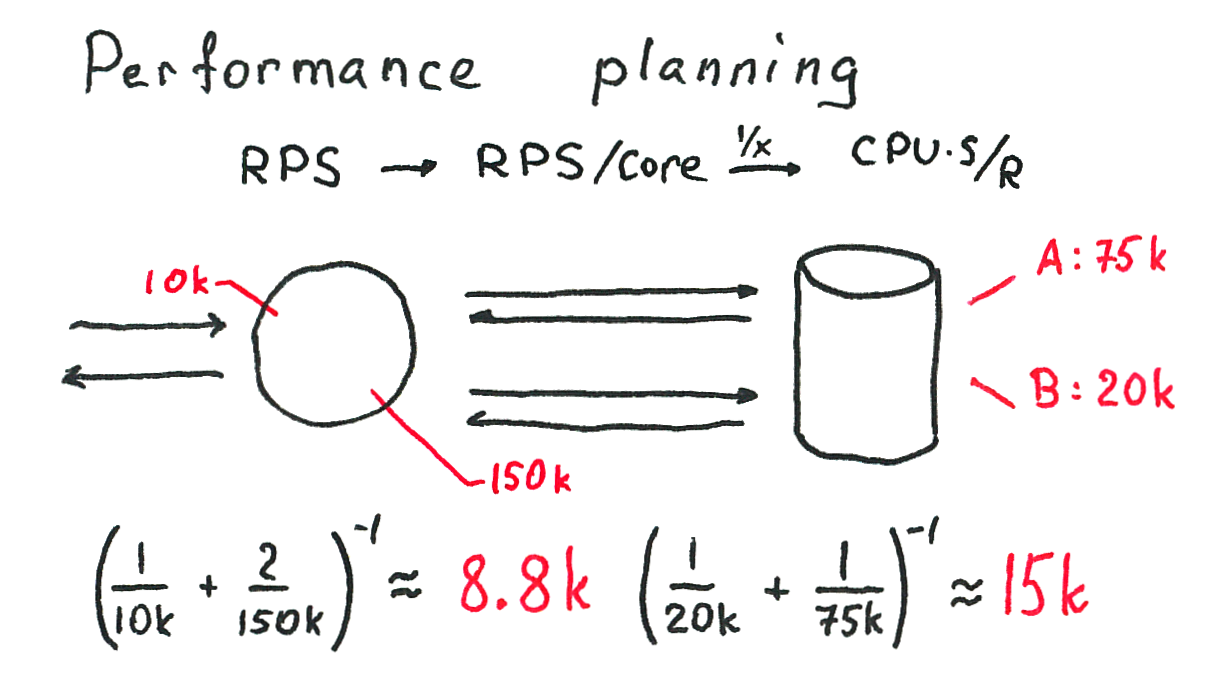 Performance planning
RPS → RPS/Core 1/x → CPU·S/R
10k
A: 75k
B: 20k
150k
(1/10k + 2/150k)^-1 ≈ 8.8k (1/20k + 1/75k)^-1 ≈ 15k